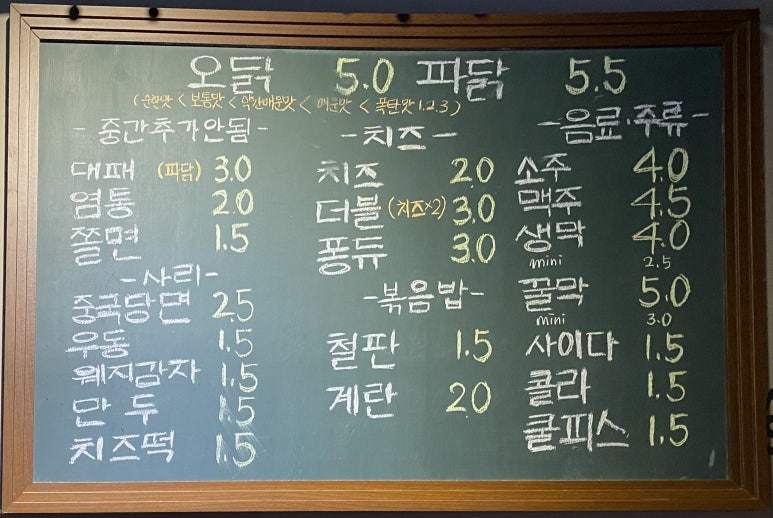 오닭 5.0 파닭 5.5
(순한맛 < 보통맛 < 약간매운맛 < 매운맛 < 폭탄맛 1.2.3)
- 중간추가안됨 -
대패 (파닭) 3.0
염통 2.0
쫄면 1.5
- 사리 -
중국당면 2.5
우동 1.5
웨지감자 1.5
만두 1.5
치즈떡 1.5
- 치즈 -
치즈 2.0
더블 (치즈×2) 3.0
퐁듀 3.0
- 볶음밥 -
철판 1.5
계란 2.0
- 음료·주류 -
소주 4.0
맥주 4.5
생막 4.0
mini 2.5
꿀막 5.0
mini 3.0
사이다 1.5
콜라 1.5
쿨피스 1.5